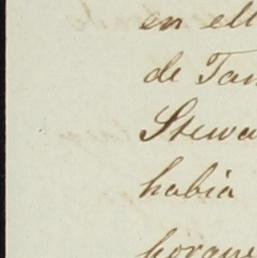 en ell
de Tan
Stewa
habia
porque